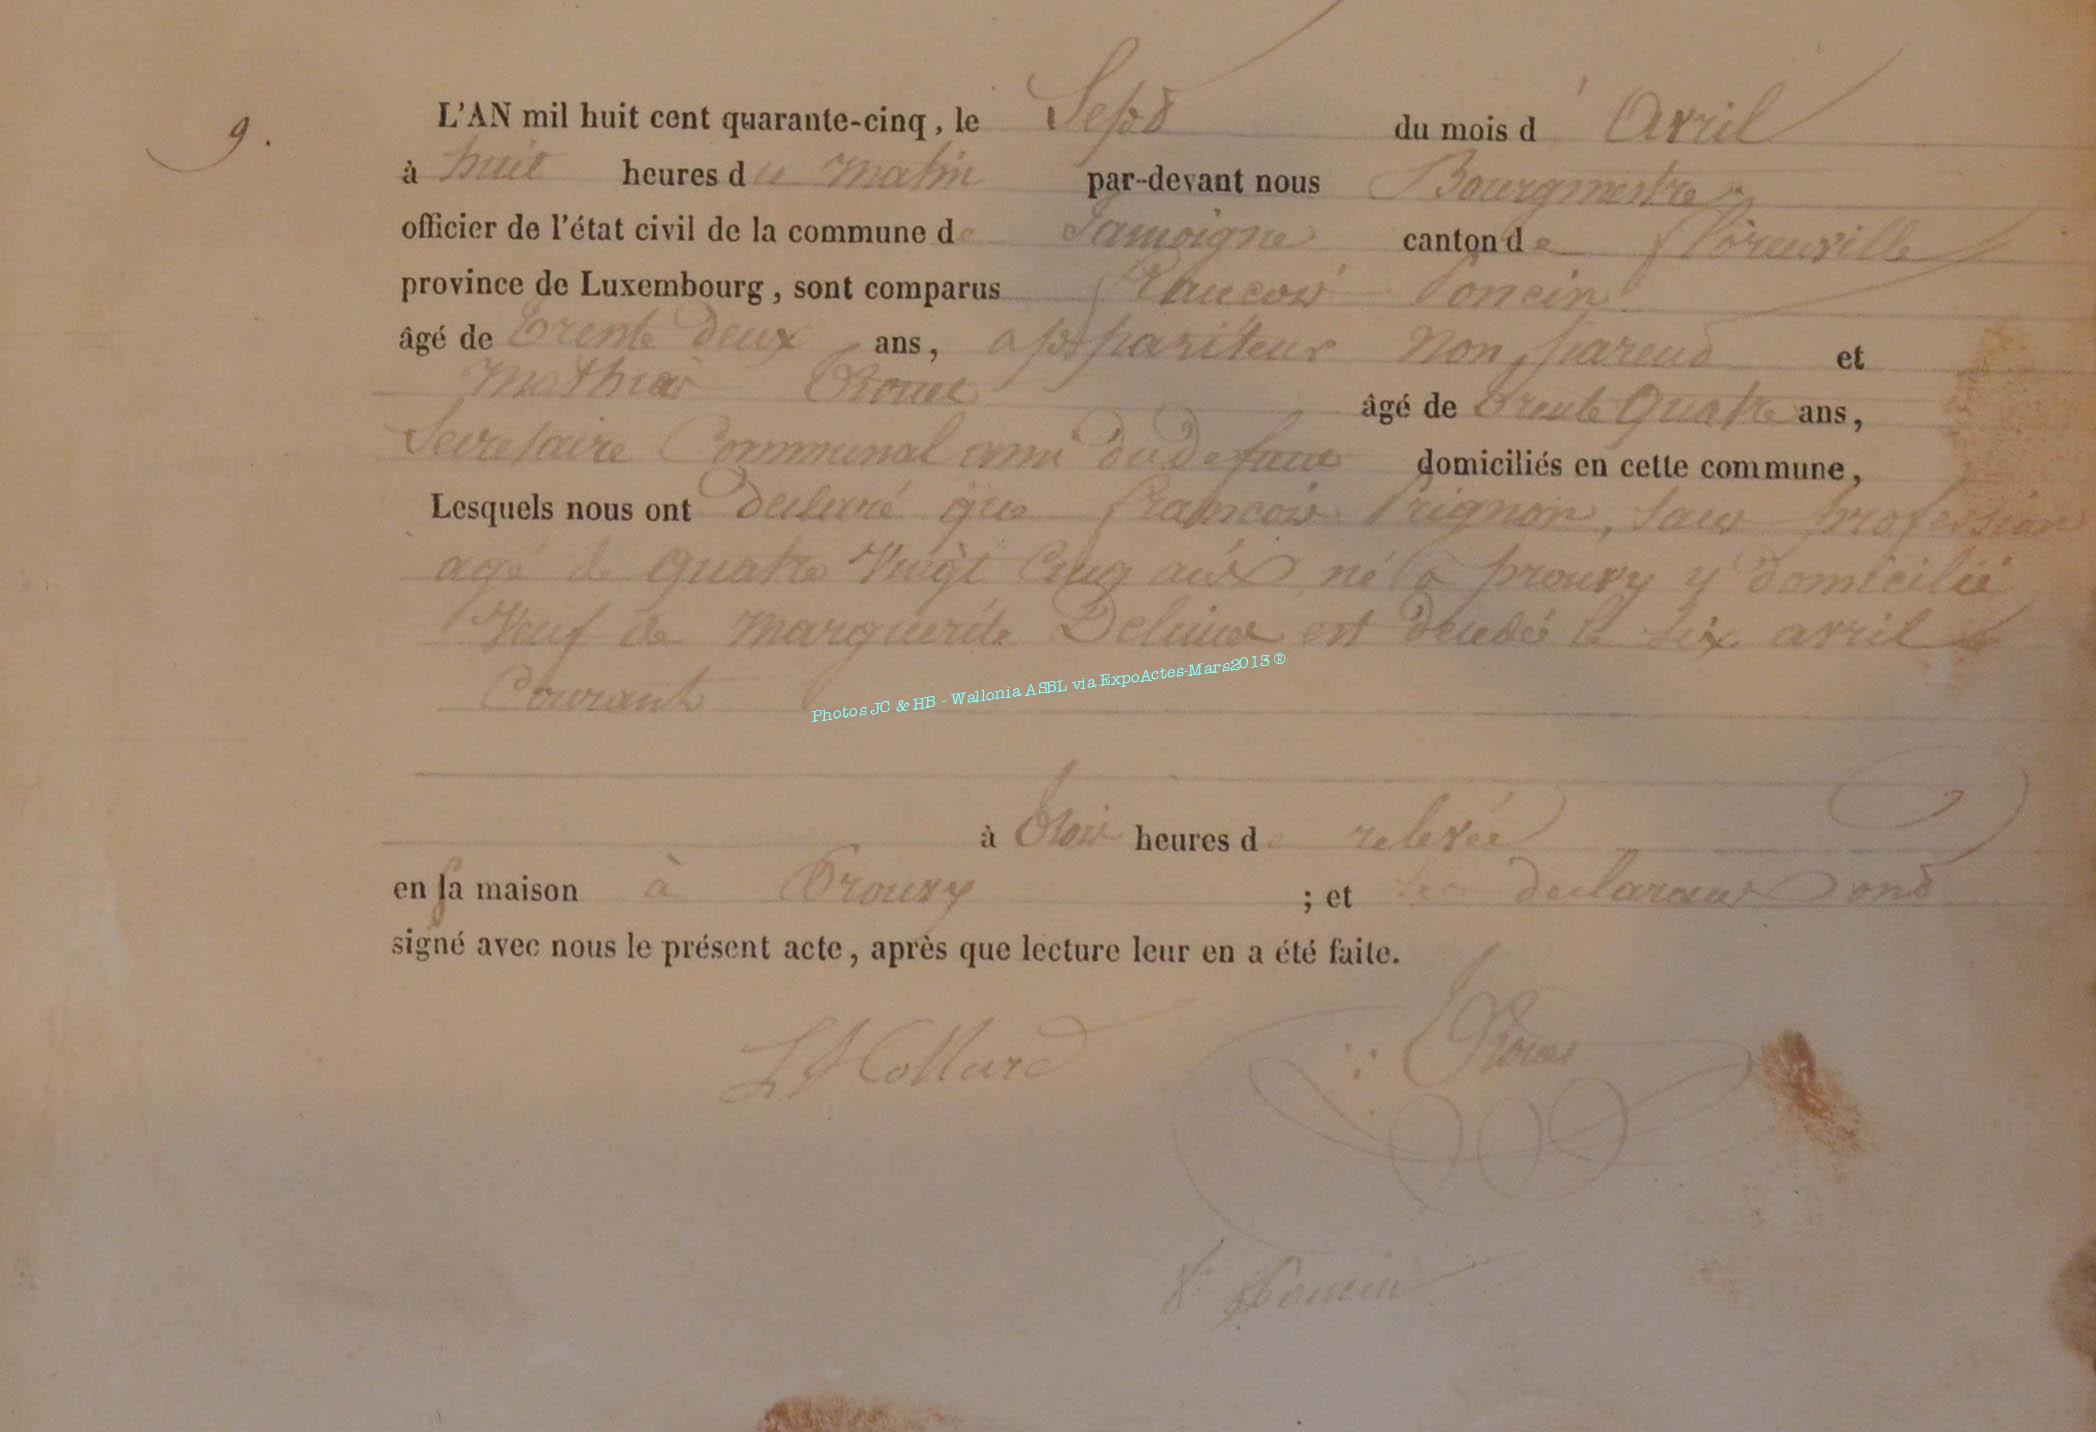 9.
L'AN mil huit cent quarante-cinq, le Sept du mois d' Avril
à huit heures du matin par-devant nous Bourgmestre
officier de l'état civil de la commune de Jamoigne canton de florenville
province de Luxembourg, sont comparus françois Poncin
âgé de trente deux ans, appariteur non parent et
Mathieu
âgé de trente quatre ans,
Secretaire Communal ami du defunt domiciliés en cette commune,
Lesquels nous ont declaré que françois Prignon, sans profession
agé de quatre vingt cinq ans, né à prouvy y domicilié
Veuf de marguerite est decedé le six avril
Courant
à trois heures de relevée
en sa maison à Prouvy ; et les declarans ont
signé avec nous le présent acte, après que lecture leur en a été faite.
Collard
Poncin
Photos JC & HB - Wallonia ASBL via ExpoActes-Mars2013 ®